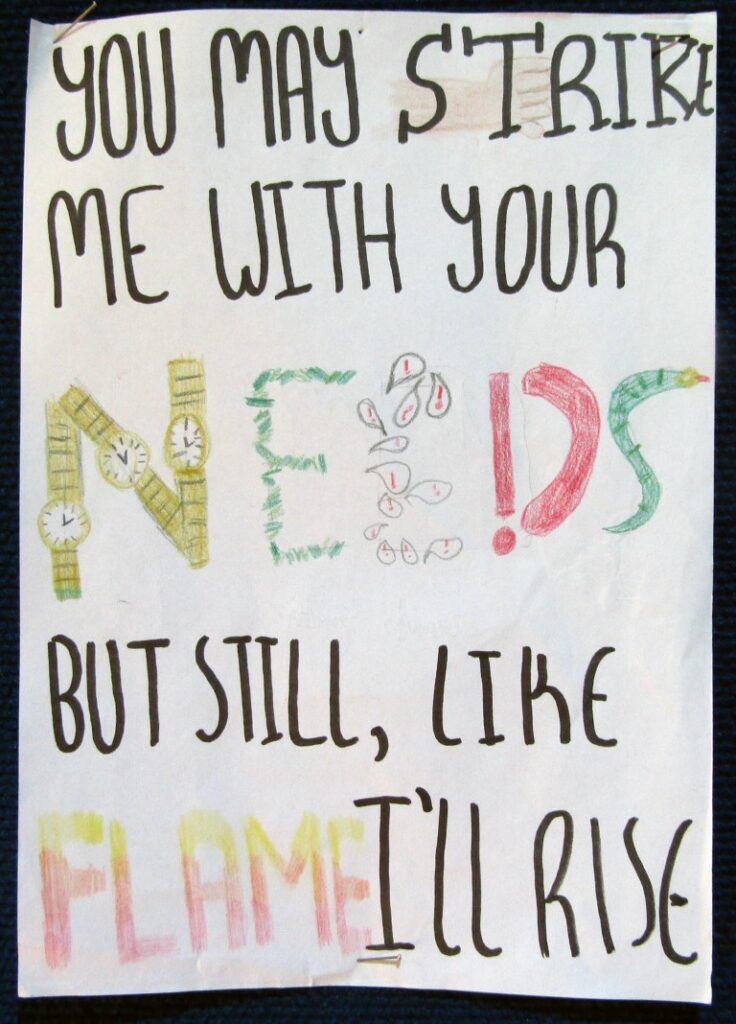 YOU MAY STRIKE
ME WITH YOUR
NEEDS
BUT STILL, LIKE
FLAME I'LL RISE